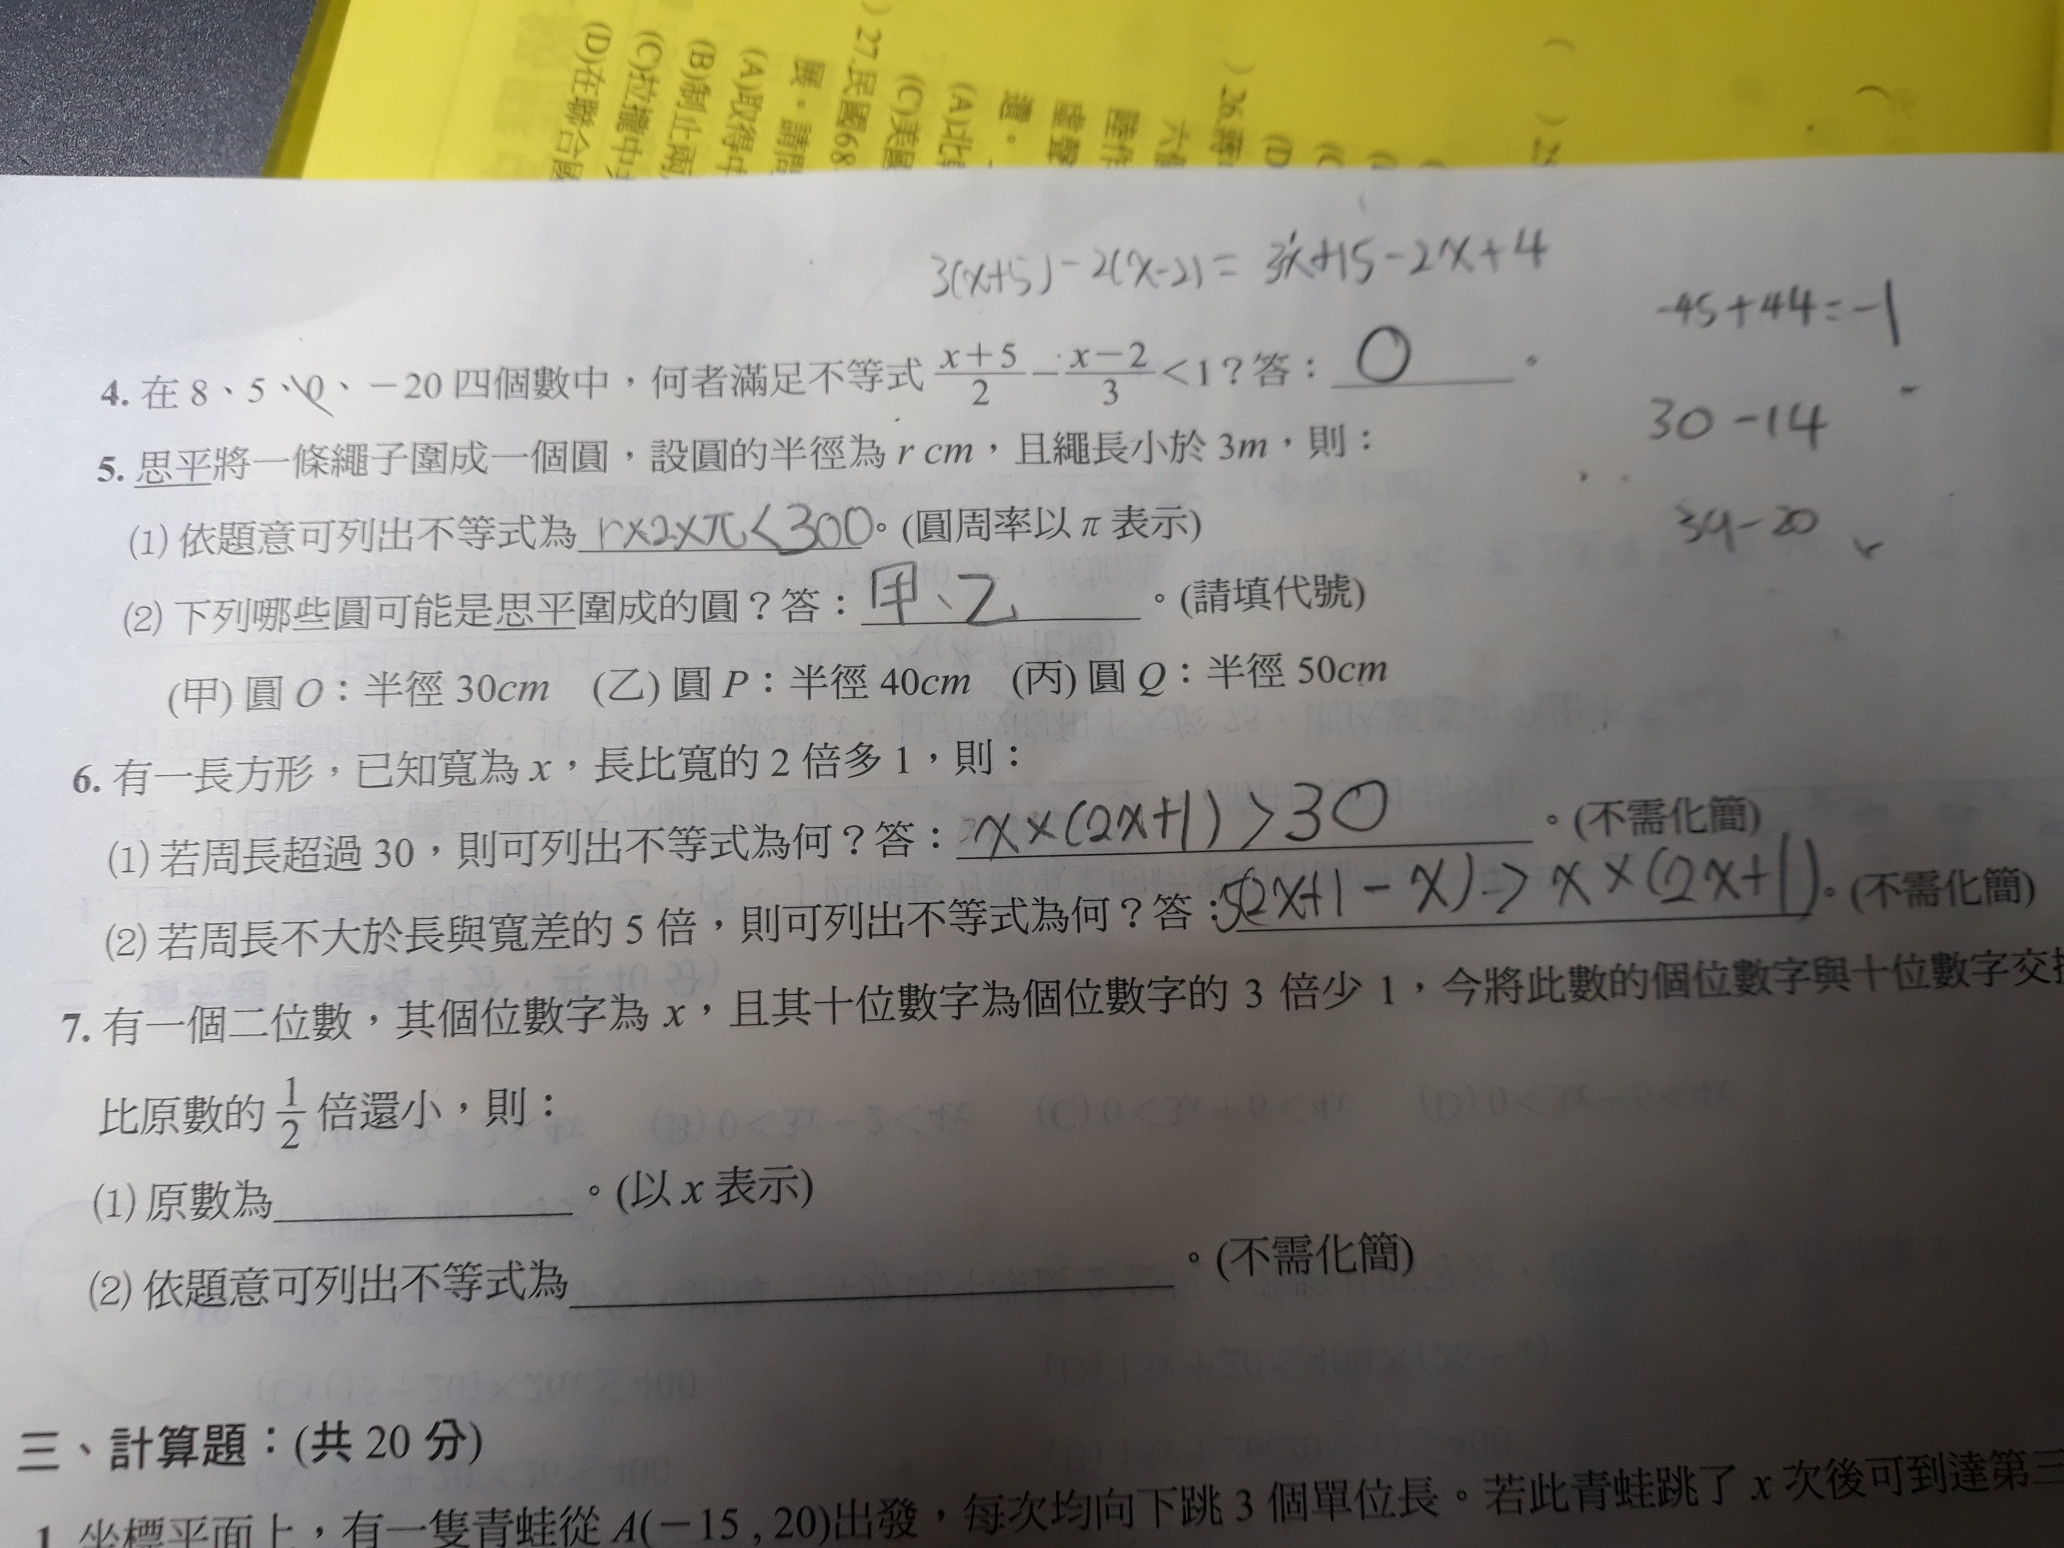 (D)在聯合國
(C)拉攏中
(B)制止兩
(A)取得中
展。請問
) 27.民國68
(C)美國
(A)北
遺。
虛聲
陸作
六
) 26.蔣
(D
3(x+5)-2(x-2)=3x+15-2x+4
-45+44=-1
30-14
34-20
4. 在 8、5、0、-20 四個數中，何者滿足不等式 \frac{x+5}{2}-\frac{x-2}{3}<1？答：0。
5. 思平將一條繩子圍成一個圓，設圓的半徑為 r cm，且繩長小於 3m，則：
(1) 依題意可列出不等式為 r×2×π<300。(圓周率以 π 表示)
(2) 下列哪些圓可能是思平圍成的圓？答：甲、乙。(請填代號)
(甲) 圓 O：半徑 30cm (乙) 圓 P：半徑 40cm (丙) 圓 Q：半徑 50cm
6. 有一長方形，已知寬為 x，長比寬的 2 倍多 1，則：
(1) 若周長超過 30，則可列出不等式為何？答：x×(2x+1)>30。(不需化簡)
(2) 若周長不大於長與寬差的 5 倍，則可列出不等式為何？答：5(2x+1-x)->x×(2x+1)。(不需化簡)
7. 有一個二位數，其個位數字為 x，且其十位數字為個位數字的 3 倍少 1，今將此數的個位數字與十位數字交
比原數的 \frac{1}{2} 倍還小，則：
(1) 原數為。(以 x 表示)
(2) 依題意可列出不等式為。(不需化簡)
三、計算題：(共 20 分)
1. 坐標平面上，有一隻青蛙從 A(-15 , 20)出發，每次均向下跳 3 個單位長。若此青蛙跳了 x 次後可到達第三